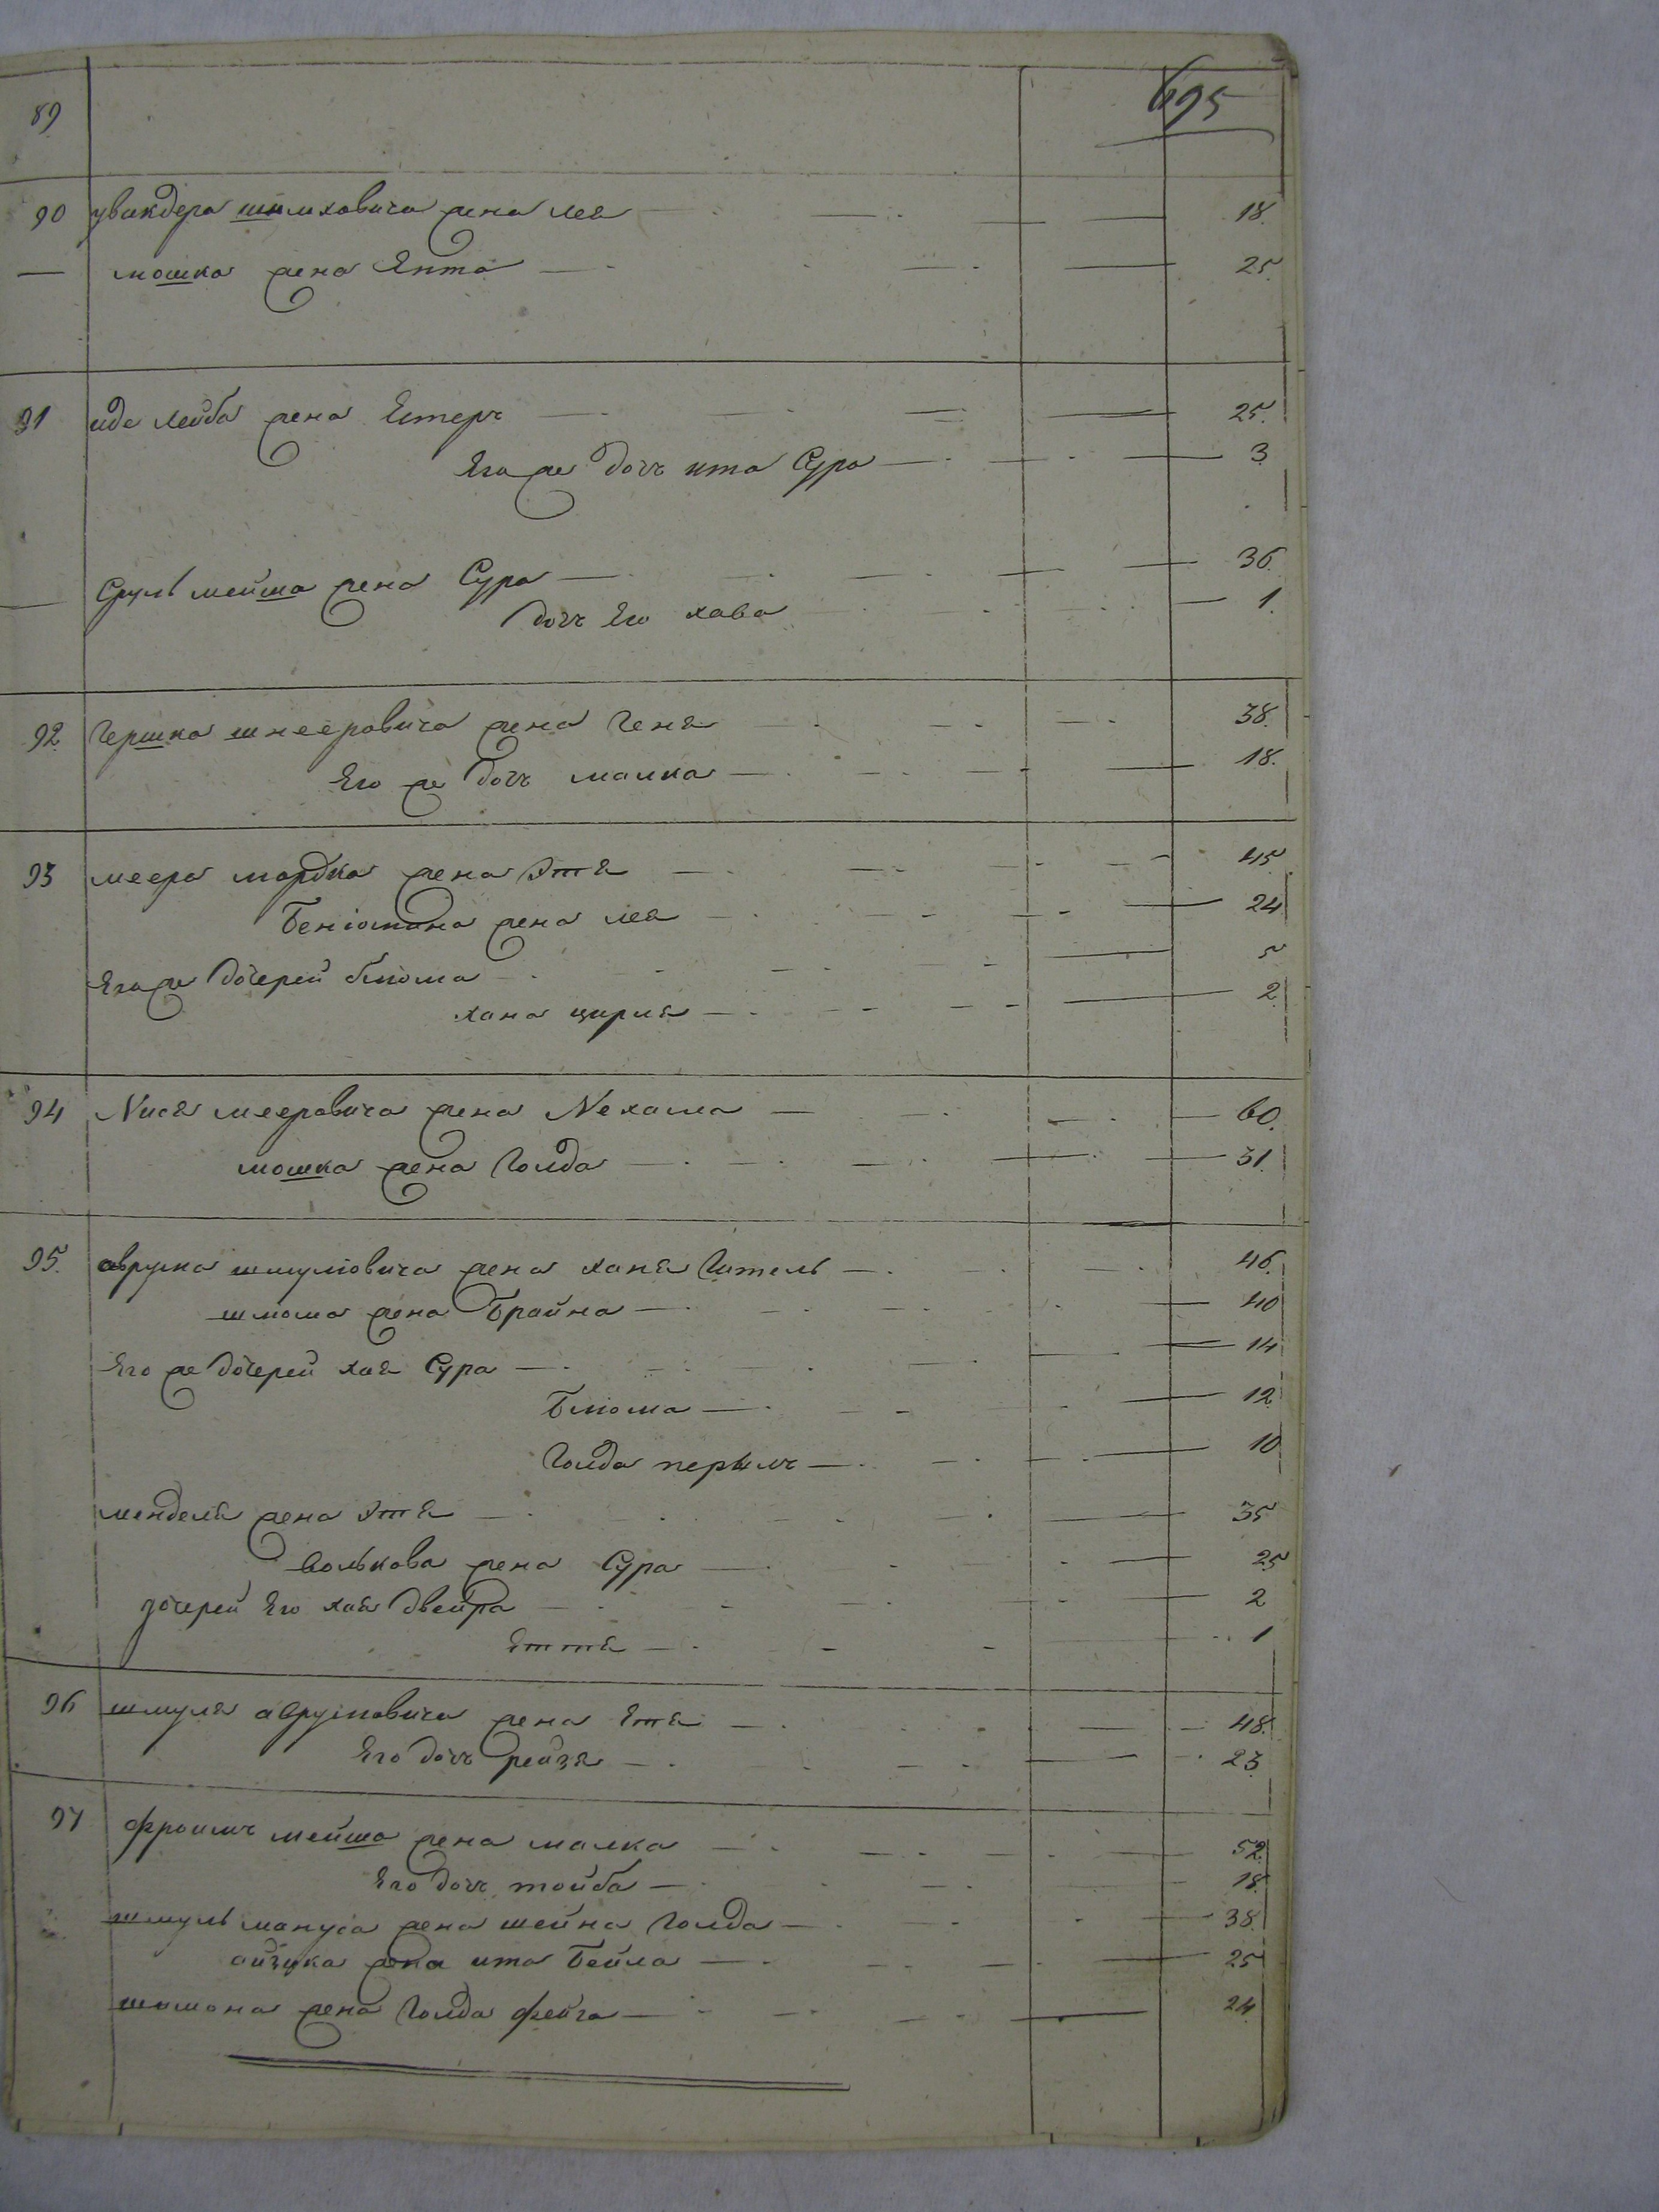 695
89
90 шмиловича жена лея 18.
— мошка жена Янта 25.
91 иде лейба жена Естеръ 25.
Его же дочь ита Сура 3
— Сруль мейша жена Сура 36.
дочь Его хава 1.
92. Гершка шнееровича жена Геня 38.
Его же дочь малка 18.
93 меера мордка жена Этя 45
Беніомина жена лея 24
Его же дочерей блюма 5
хана цирля 2.
94 Нися мееровича жена Нехама 60.
мошка жена Голда 31.
95. аврума шмулiовича жена ханя Гитель 46.
шлиома жена Брайна 40
Его же дочерей хая Сура 14
Блюма 12
Голда перыль 10
менделя жена Этя 35
волькова жена Сура 25
дочерей Его хая двейра 2
Еття 1
96 шмуля аврумовича жена Етя 48.
Его дочь рейзя 23.
97 фроимъ мейша жена малка 52.
Его дочь тойба 18.
шмуль мануса жена шейна Голда 38.
айзика жена ита Бейла 25
шимона жена Голда фейга 24